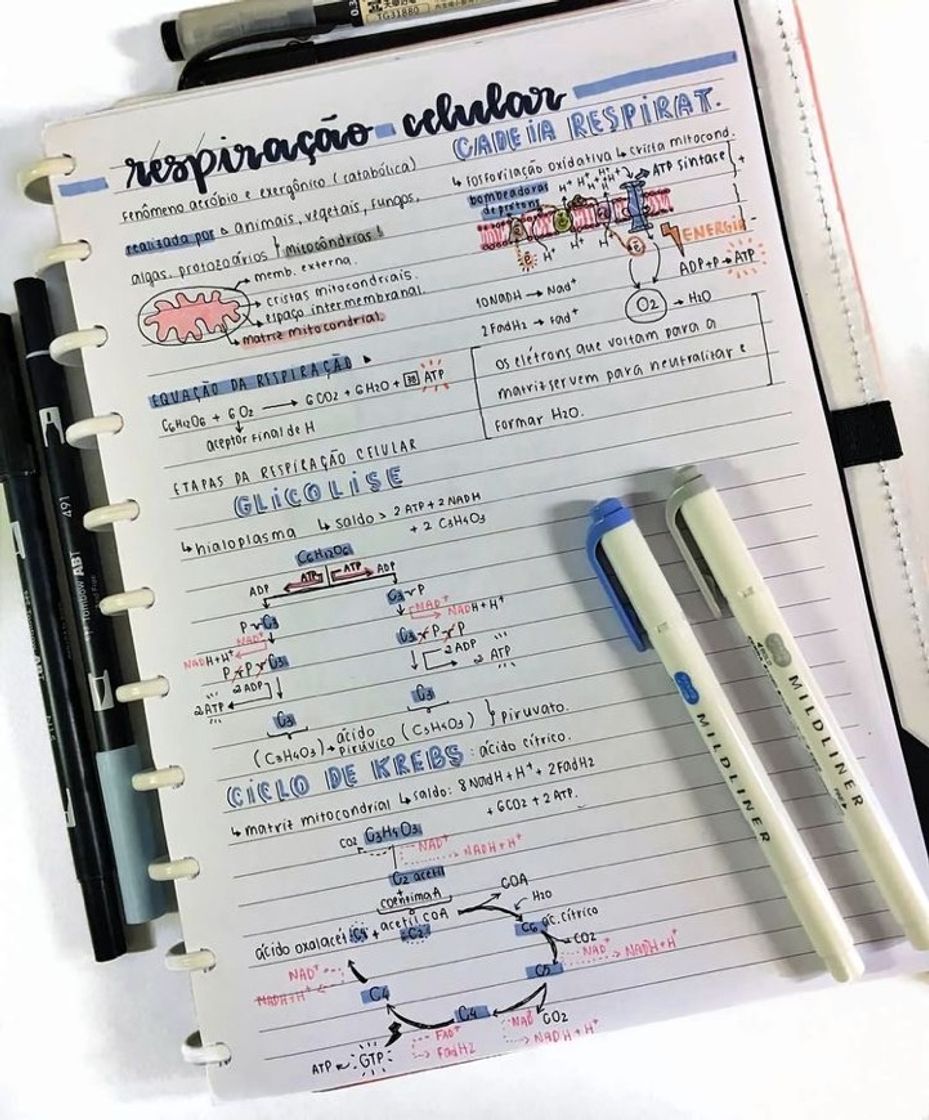 TG31880
respiração celular
fenômeno aeróbio e exergônico (catabólica)
realizada por animais, vegetais, fungos,
algas, protozoários } mitocôndrias!
memb. externa.
cristas mitocondriais.
espaço intermembranal.
matriz mitocondrial.
EQUAÇÃO DA RESPIRAÇÃO
C6H12O6 + 6O2 → 6CO2 + 6H2O + 38 ATP
↓
aceptor final de H
CADEIA RESPIRAT.
↳ fosforilação oxidativa ↳ crista mitocond.
bombeadoras
de prótons
H+ H+ H+ H+ H+
→ ATP sintase
ē H+ H+ H+ ē
ENERGIA
ADP+P → ATP
O2 → H2O
10NADH → Nad+
2FadH2 → Fad+
Os elétrons que voltam para a
matriz servem para neutralizar e
formar H2O.
ETAPAS DA RESPIRAÇÃO CELULAR
GLICOLISE
↳ hialoplasma ↳ saldo > 2 ATP + 2 NADH
+ 2 C3H4O3
C6H12O6
ADP ← ATP ATP → ADP
P~C3 C3~P
NAD+ NAD+
NADH+H+ NADH+H+
P~P~C3 C3~P~P
2 ADP 2 ADP
2 ATP 2 ATP
C3 C3
(C3H4O3) → ácido pirúvico (C3H4O3) } piruvato.
CICLO DE KREBS: ácido cítrico.
↳ matriz mitocondrial ↳ saldo: 8NadH+H+ + 2FadH2
+ 6CO2 + 2ATP.
CO2 C3H4O3
NAD+
NADH+H+
C2 acetil
+
coenzima A
COA
H2O
ácido oxalacét C4 + acetil COA
C2
C6 ác. cítrico
CO2
NAD+ NADH+H+
C5
NAD+
NADH+H+
C4
C4
NAD+ CO2
NADH+H+
FAD+
FadH2
ATP GTP
491
Tombow ABT
MILDLINER
MILDLINER